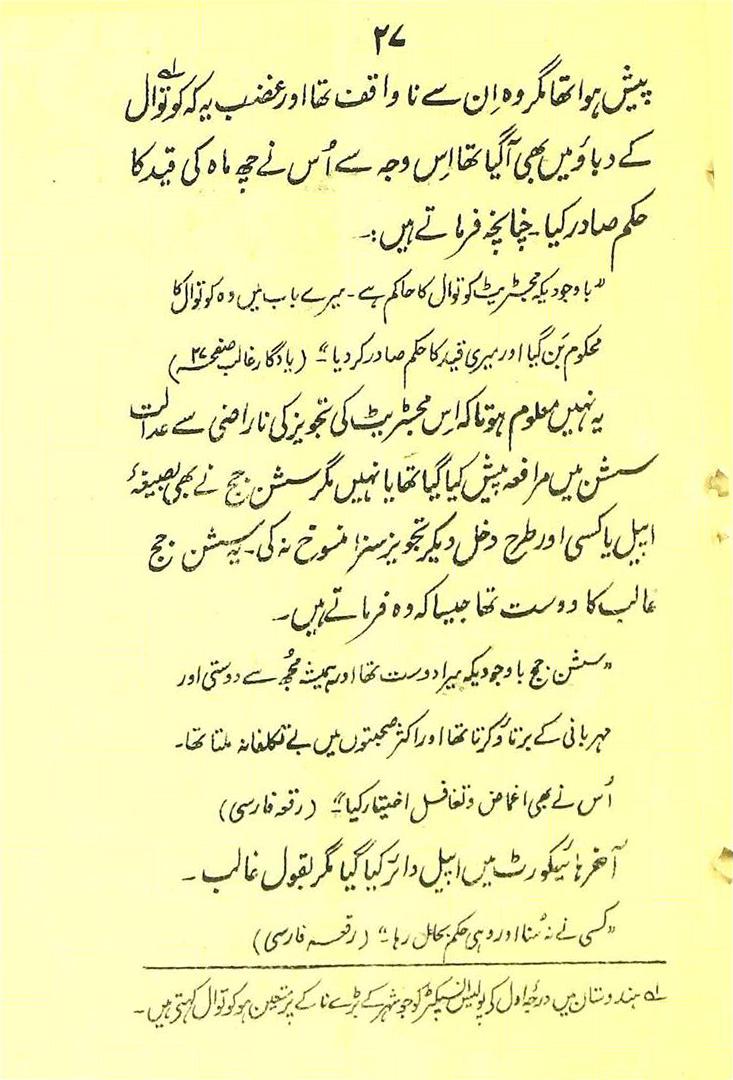 ۲۷
پیش ہوا تھا مگر وہ اِن سے نا واقف تھا اور غضب یہ کہ کوتوال لہ
کے دباؤ میں بھی آگیا تھا اِس وجہ سے اُس نے چھ ماہ کی قید کا
حکم صادر کیا۔ چنانچہ فرماتے ہیں:۔
”باوجودیکہ مجسٹریٹ کوتوال کا حاکم ہے۔ میرے باب میں وہ کوتوال کا
محکوم بَن گیا اور میری قید کا حکم صادر کر دیا“۔ (یادگار غالب صفحہ ۲۷)
یہ نہیں معلوم ہوتا کہ اِس مجسٹریٹ کی تجویز کی ناراضی سے عدالت
سشن میں مرافعہ پیش کیا گیا تھا یا نہیں مگر سشن جج نے بھی بصیغۂ
اپیل یا کسی اور طرح دخل دیکر تجویز سزا منسوخ نہ کی۔ یہ سشن جج
غالب کا دوست تھا جیسا کہ وہ فرماتے ہیں۔
”سشن جج باوجودیکہ میرا دوست تھا اور ہمیشہ مُجھ سے دوستی اور
مہربانی کے برتاؤ کرتا تھا اور اکثر صحبتوں میں بے تکلفانہ ملتا تھا۔
اُس نے بھی اغماض و تغافل اختیار کیا“۔ (رقعہ فارسی)
آخر ہائیکورٹ میں اپیل دائر کیا گیا مگر بقول غالب۔
”کسی نے نہ سُنا اور وہی حکم بحال رہا“۔ (رقعہ فارسی)
لہ ہندوستان میں درجۂ اول کے پولیس انسپکٹر کو جو شہر کے بڑے ناکے پر متعین ہو کوتوال کہتی ہیں۔